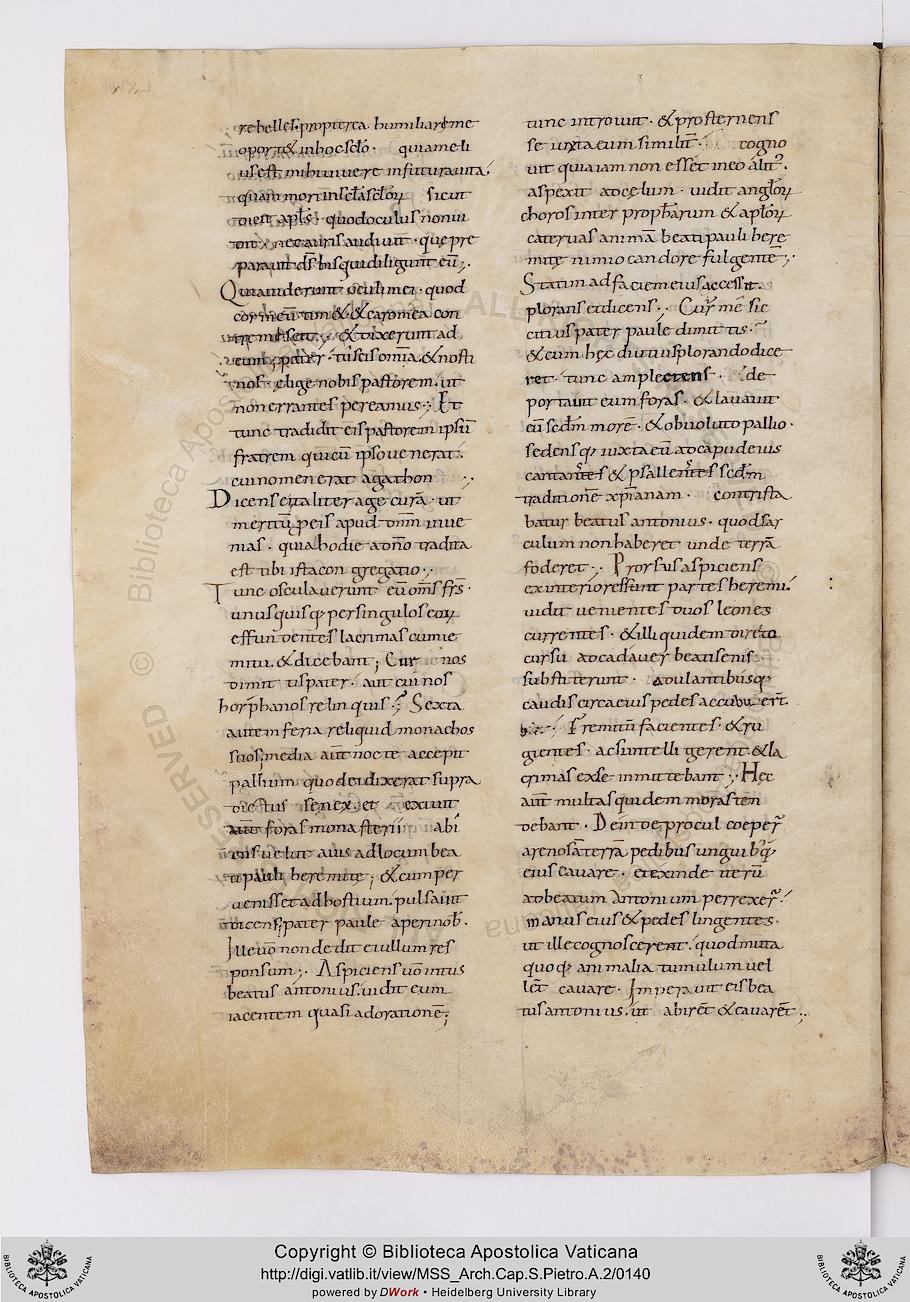 rebelles. propterea humiliare me
oportet in hoc sclo. quia meli
us est mihi vivere in futura vita.
quam mori in scla sclorum sicut
dicit apls. quod oculus non vi
dit nec auris audivit. que pre
paravit ds his qui diligunt eum;
Quia viderunt oculi mei. quod
cor meum timet. & caro mea con
tremescit; & dixerunt ad
eum; pater. tu scis omnia. & nosti
nos. elige nobis pastorem. ut
non errantes pereamus; Et
tunc tradidit eis pastorem ipsum
fratrem qui cum ipso venerat.
cui nomen erat agathon
Dicens ei taliter age curam. ut
meritum p eis apud dnm inve
nias. quia hodie a dno tradita
est tibi ista congregatio;
Tunc osculaverunt eum oms frs.
unusquisq; per singulos eorum
effundentes lacrimas cum ge
mitu. & dicebant; Cur nos
dimittis pater. aut cui nos
horphanos relinquis; Sexta
autem feria reliquid monachos
suos; media aut nocte accepit
pallium. quod ei dixerat supra
dictus senex. et exivit
foras monasterii abi
ens velut avis ad locum bea
ti pauli heremite; & cum per
venisset ad hostium. pulsavit
dicens; pater paule aperi nob.
Ille vo non dedit ei ullum res
ponsum; Aspiciens vo intus
beatus antonius. vidit eum
iacentem quasi adoratione;
tunc introivit. & prosternens
se iuxta eum similit. cogno
vit quia iam non esset in eo alit.
aspexit ad celum. vidit anglorum
choros inter propharum & aplorum
catervas animam beati pauli here
mite nimio candore fulgentem;
Statim ad faciem eius accessit.
plorans et dicens; Cur me sic
citius pater paule dimittis.
& cum hec diutius plorando dice
ret. tunc amplectens. de
portavit eum foras. & lavavit
eum scdm morem. & obvoluto pallio.
sedensq; iuxta eum ad caput eius
cantantes & psallentes scdm
traditionem xpianam. contrista
batur beatus antonius. quod sar
culum non haberet unde terram
foderet; Prorsus aspiciens
ex interiores sunt partes heremi.
vidit venientes duos leones
currentes. & illi quidem directo
cursu ad cadaver beati senis
substiterunt. adulantibusq;
caudis circa eius pedes accubuert.
Fremitum facientes. & ru
gientes. ac si intelligerent. & la
crimas ex se inmittebant; Hec
aut multas quidem moras ten
debant. Deinde procul coeper
arenosa terram pedibus unguibq;
eius cavare. et exinde iterum
ad beatum Antonium perrexer.
manus eius & pedes lingentes.
ut ille cognoscerent. quod muta
quoq; animalia tumulum vel
let cavare. Imperavit eis bea
tus antonius. ut abirent & cavarent;
Copyright © Biblioteca Apostolica Vaticana
http://digi.vatlib.it/view/MSS_Arch.Cap.S.Pietro.A.2/0140
powered by DWork • Heidelberg University Library